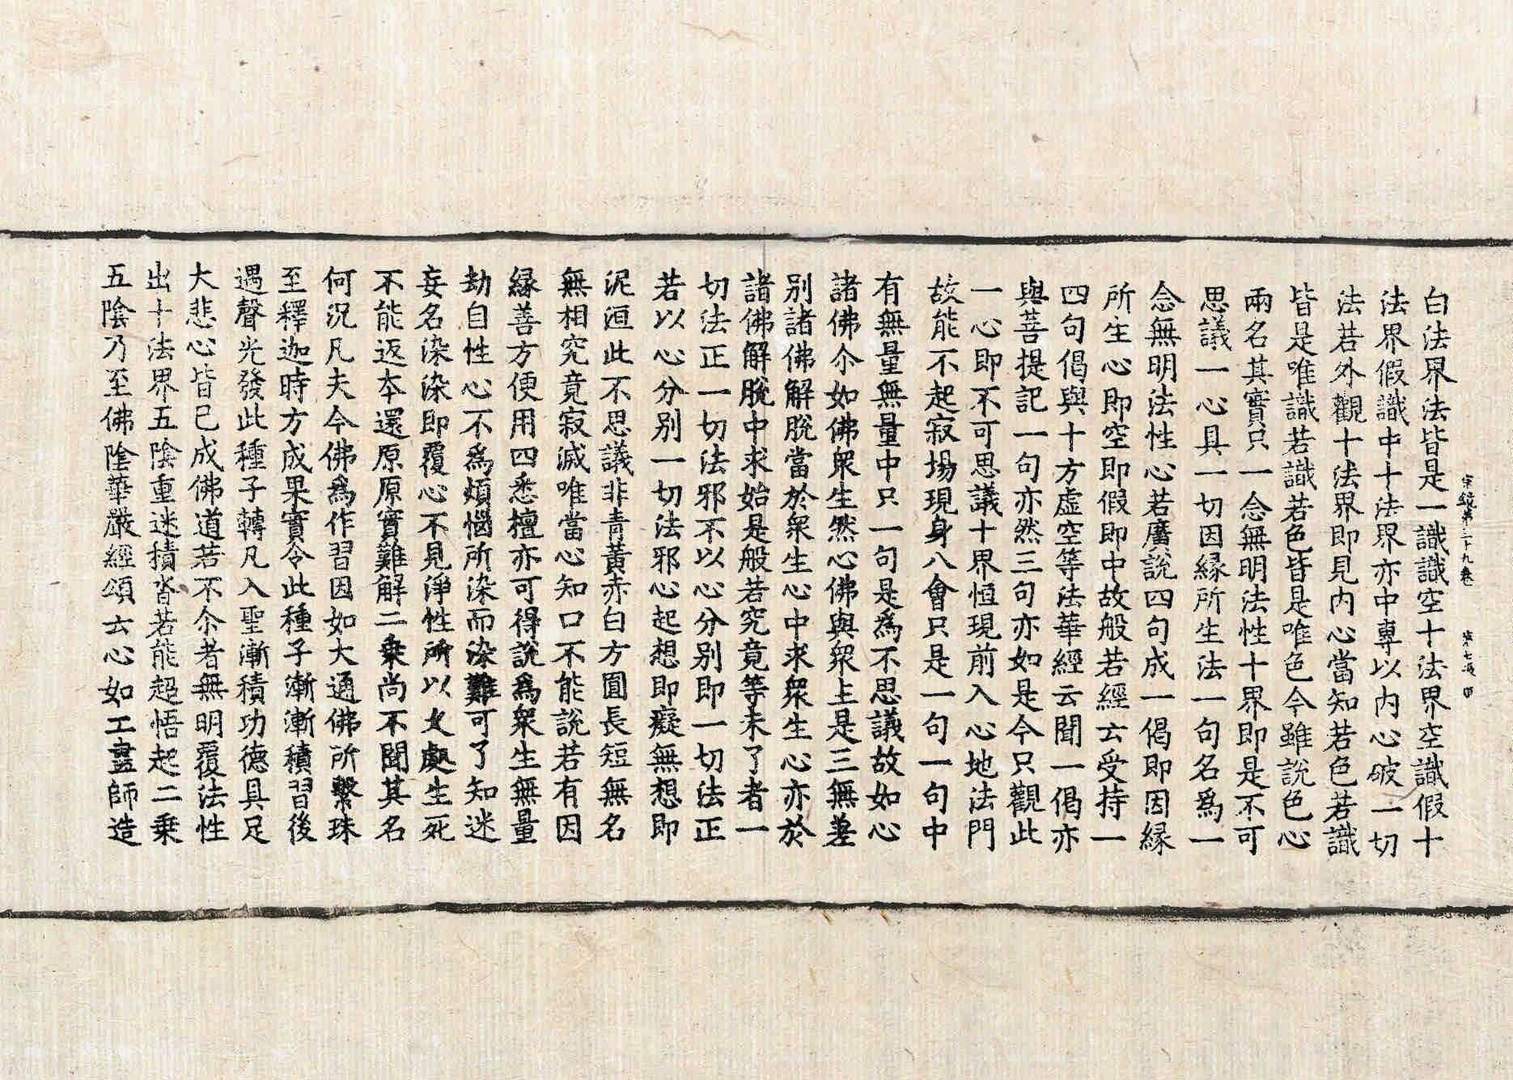 宗鏡第三十九卷 第七張
白法界法皆是一識識空十法界空識假十
法界假識中十法界亦中專以内心破一切
法若外觀十法界即見内心當知若色若識
皆是唯識若識若色皆是唯色今雖說色心
兩名其實只一念無明法性十界即是不可
思議一心具一切因縁所生法一句名爲一
念無明法性心若廣說四句成一偈即因縁
所生心即空即假即中故般若經云受持一
四句偈與十方虚空等法華經云聞一偈亦
與菩提記一句亦然三句亦如是今只觀此
一心即不可思議十界恒現前入心地法門
故能不起寂場現身八會只是一句一句中
有無量無量中只一句是爲不思議故如心
諸佛尒如佛衆生然心佛與衆生是三無差
別諸佛解脫當於衆生心中求衆生心亦於
諸佛解脫中求始是般若究竟等未了者一
切法正一切法邪不以心分別即一切法正
若以心分別一切法邪心起想即癡無想即
泥洹此不思議非青黃赤白方圓長短無名
無相究竟寂滅唯當心知口不能說若有因
縁善方便用四悉檀亦可得說爲衆生無量
劫自性心不爲煩惱所染而染難可了知迷
妄名染染即覆心不見淨性所以久處生死
不能返本還原原實難解二乗尚不聞其名
何況凡夫今佛爲作習因如大通佛所繫珠
至釋迦時方成果實令此種子漸漸積習後
遇聲光發此種子轉凡入聖漸積功德具足
大悲心皆已成佛道若不尒者無明覆法性
出十法界五陰重迷積沓若能超悟起二乗
五陰乃至佛陰華嚴經頌云心如工畫師造